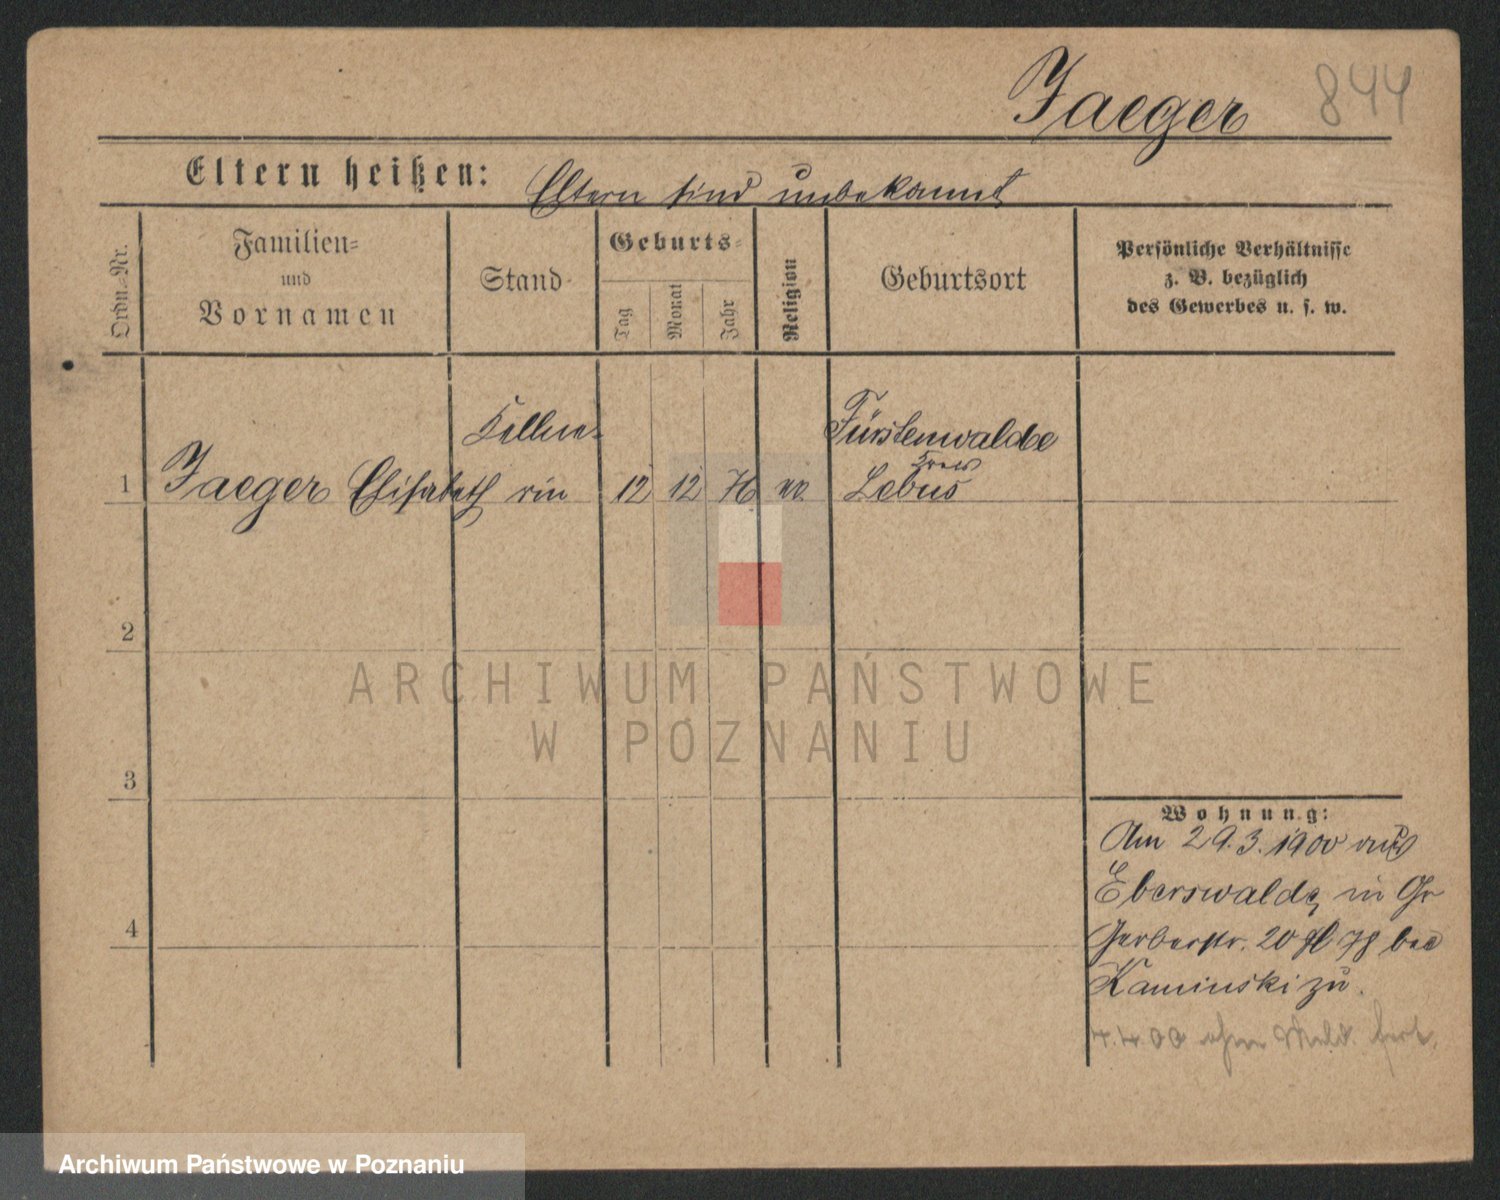 Jaeger 844
Eltern heißen: Eltern sind unbekannt
Ordn.-Nr.
Familien-
und
Vornamen
Stand
Geburts-
Tag
Monat
Jahr
Religion
Geburtsort
Persönliche Verhältnisse
z. B. bezüglich
des Gewerbes u. s. w.
Kellne- Fürstenwalde
Kreis
1 Jaeger Elisabeth rin 12 12 76 Lebus
2
3
4
Wohnung:
Am 29.3.1900 aus
Eberswalde, in Gr
Gerberstr. 20 bei
Kaminski zu.
4.4.00 ohne Meld. fort.
ARCHIWUM PAŃSTWOWE
W POZNANIU
Archiwum Państwowe w Poznaniu